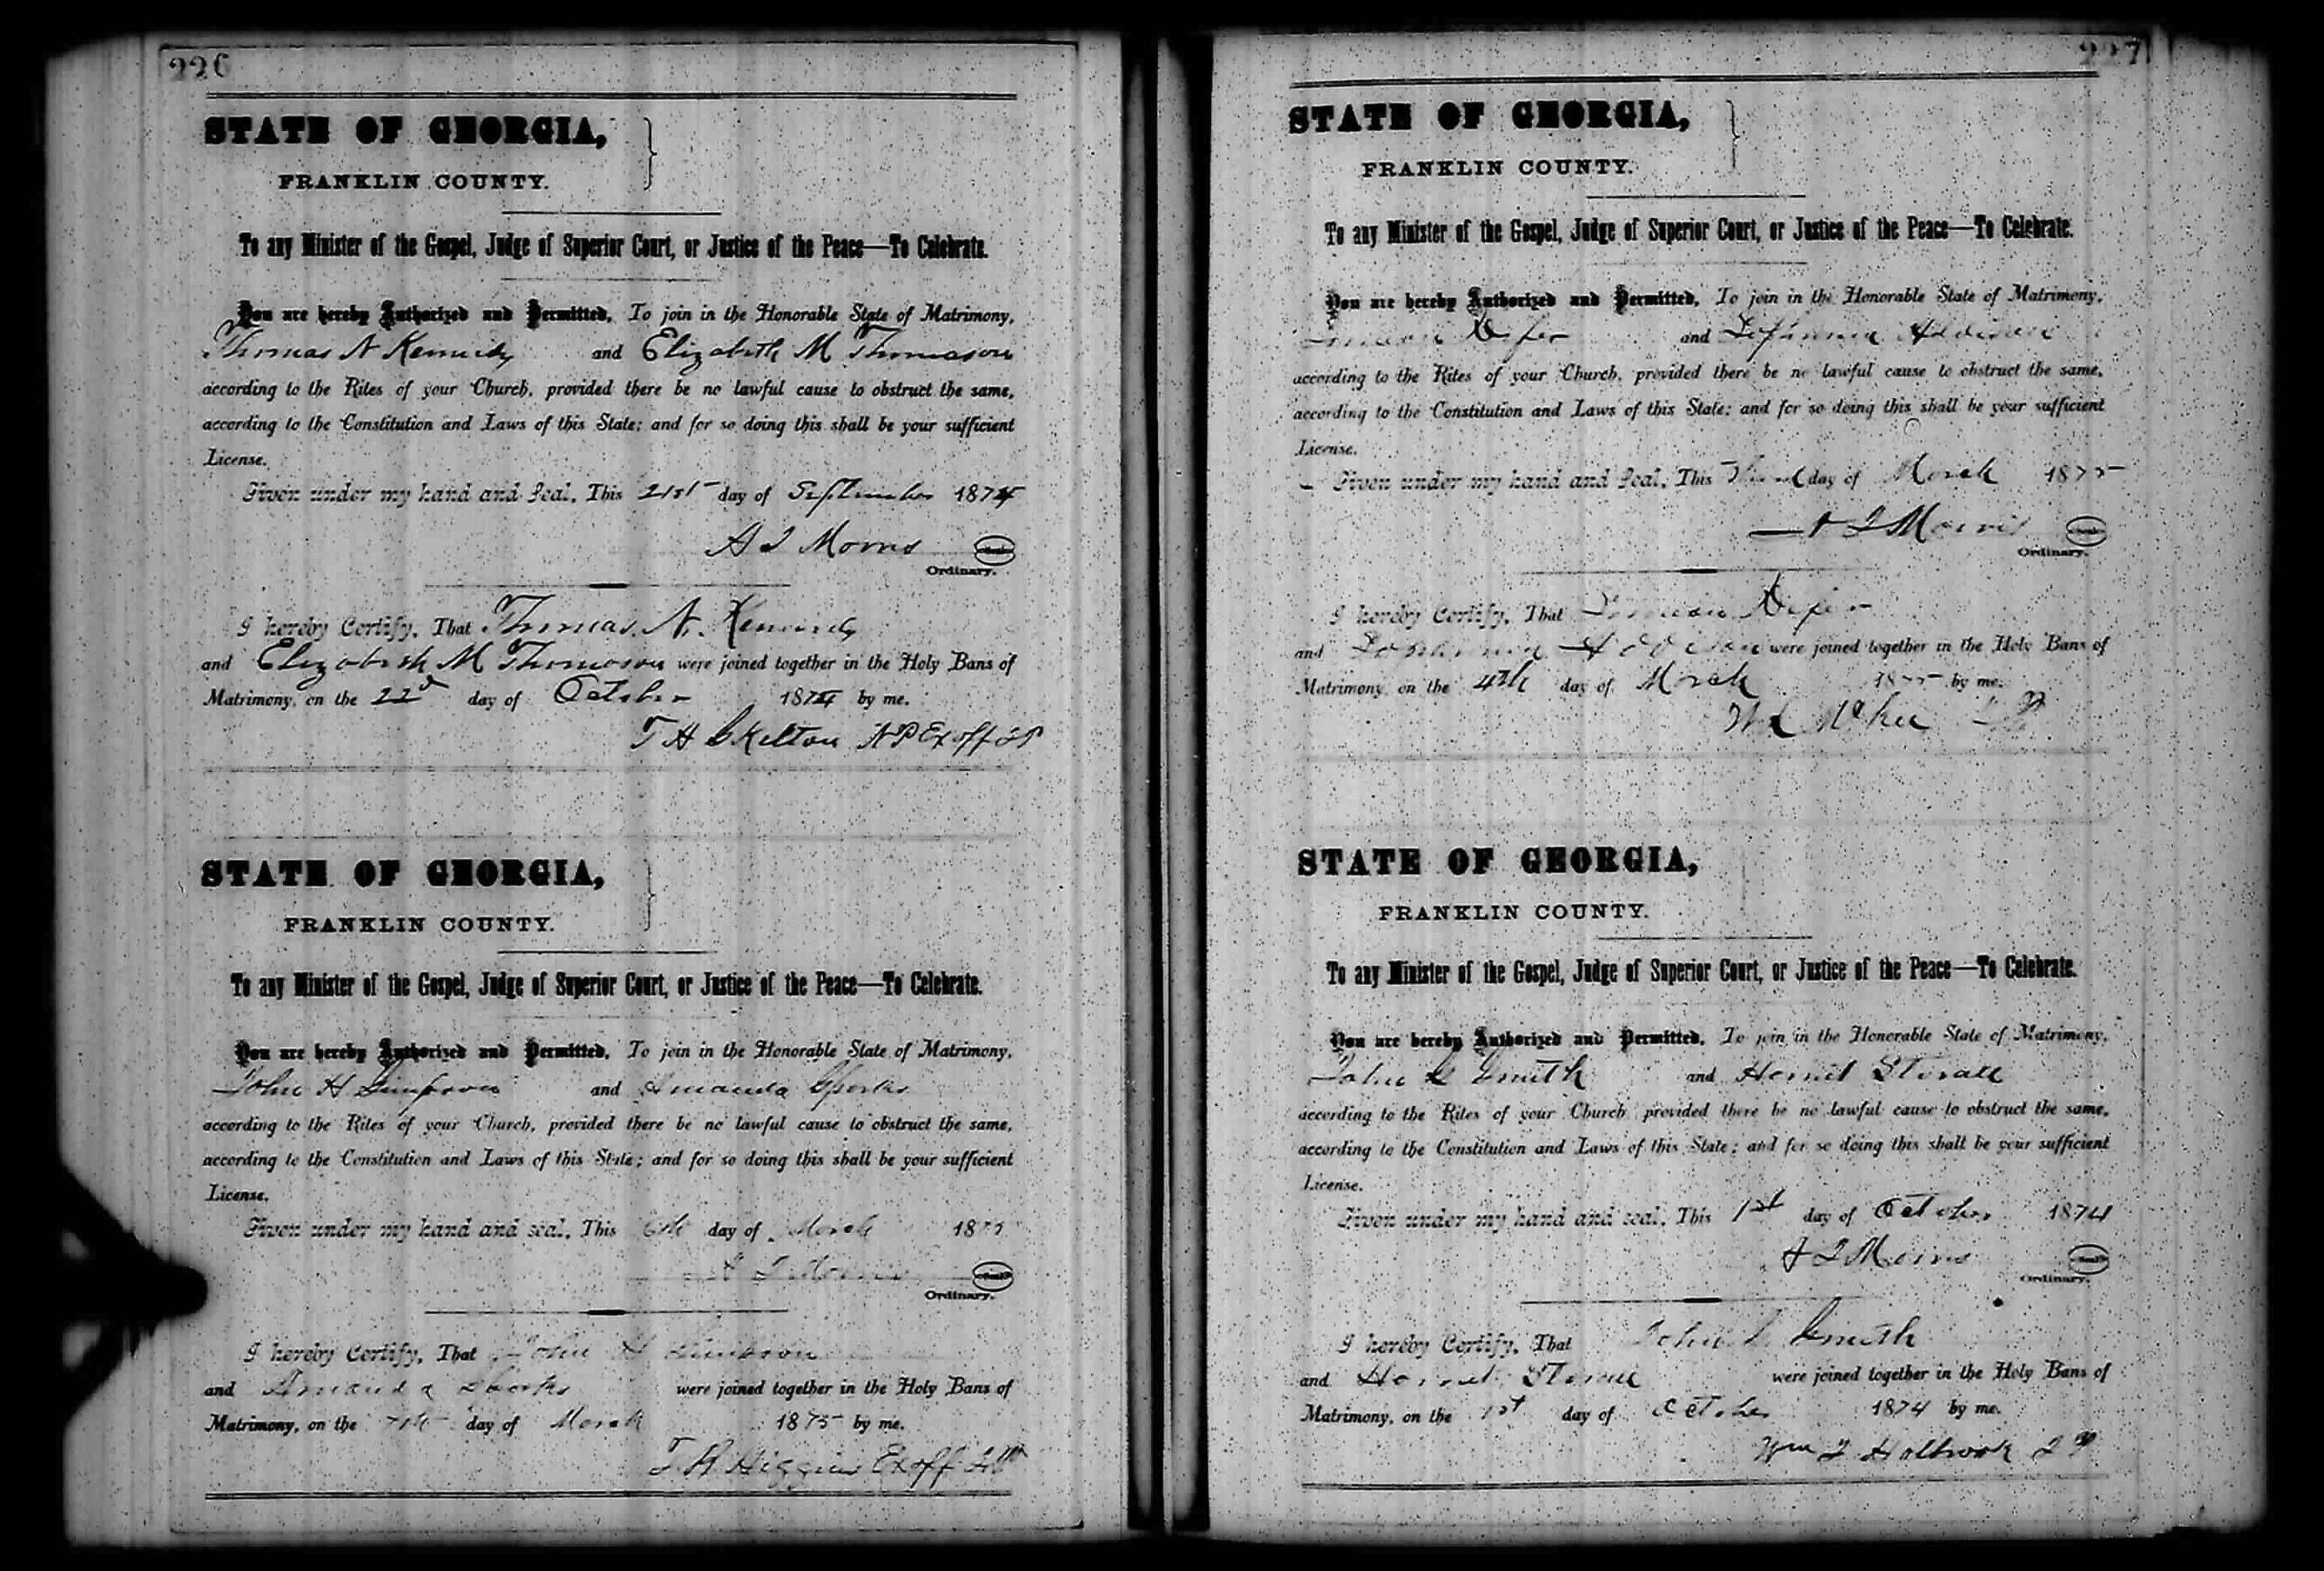 226
STATE OF GEORGIA,
FRANKLIN COUNTY.
To any Minister of the Gospel, Judge of Superior Court, or Justice of the Peace—To Celebrate.
You are hereby Authorized and Permitted, To join in the Honorable State of Matrimony,
Thomas N Kennedy and Elizabeth M Thomason
according to the Rites of your Church, provided there be no lawful cause to obstruct the same,
according to the Constitution and Laws of this State; and for so doing this shall be your sufficient
License.
Given under my hand and Seal, This 21st day of September 1874
A J Morris
Ordinary.
I hereby Certify, That Thomas. N. Kennedy
and Elizabeth M Thomason were joined together in the Holy Bans of
Matrimony, on the 22d day of October 1874 by me.
T H Skelton N P Ex off J P
STATE OF GEORGIA,
FRANKLIN COUNTY.
To any Minister of the Gospel, Judge of Superior Court, or Justice of the Peace—To Celebrate.
You are hereby Authorized and Permitted, To join in the Honorable State of Matrimony,
John H Simpson and Amanda Sparks
according to the Rites of your Church, provided there be no lawful cause to obstruct the same,
according to the Constitution and Laws of this State; and for so doing this shall be your sufficient
License.
Given under my hand and seal, This 6th day of March 1875
A J Morris
Ordinary.
I hereby Certify, That John H Simpson
and Amanda Sparks were joined together in the Holy Bans of
Matrimony, on the 7th day of March 1875 by me.
Higgins Ex off
227
STATE OF GEORGIA,
FRANKLIN COUNTY.
To any Minister of the Gospel, Judge of Superior Court, or Justice of the Peace—To Celebrate.
You are hereby Authorized and Permitted, To join in the Honorable State of Matrimony,
and
according to the Rites of your Church, provided there be no lawful cause to obstruct the same,
according to the Constitution and Laws of this State; and for so doing this shall be your sufficient
License.
Given under my hand and Seal, This day of March 1875
A J Morris
Ordinary.
I hereby Certify, That
and were joined together in the Holy Bans of
Matrimony, on the 4th day of March 1875 by me.
STATE OF GEORGIA,
FRANKLIN COUNTY.
To any Minister of the Gospel, Judge of Superior Court, or Justice of the Peace—To Celebrate.
You are hereby Authorized and Permitted, To join in the Honorable State of Matrimony,
John Smith and Stovall
according to the Rites of your Church, provided there be no lawful cause to obstruct the same,
according to the Constitution and Laws of this State; and for so doing this shall be your sufficient
License.
Given under my hand and seal, This 1st day of October 1874
A J Morris
Ordinary.
I hereby Certify, That John Smith
and were joined together in the Holy Bans of
Matrimony, on the 1st day of October 1874 by me.
Wm Holbrook J P